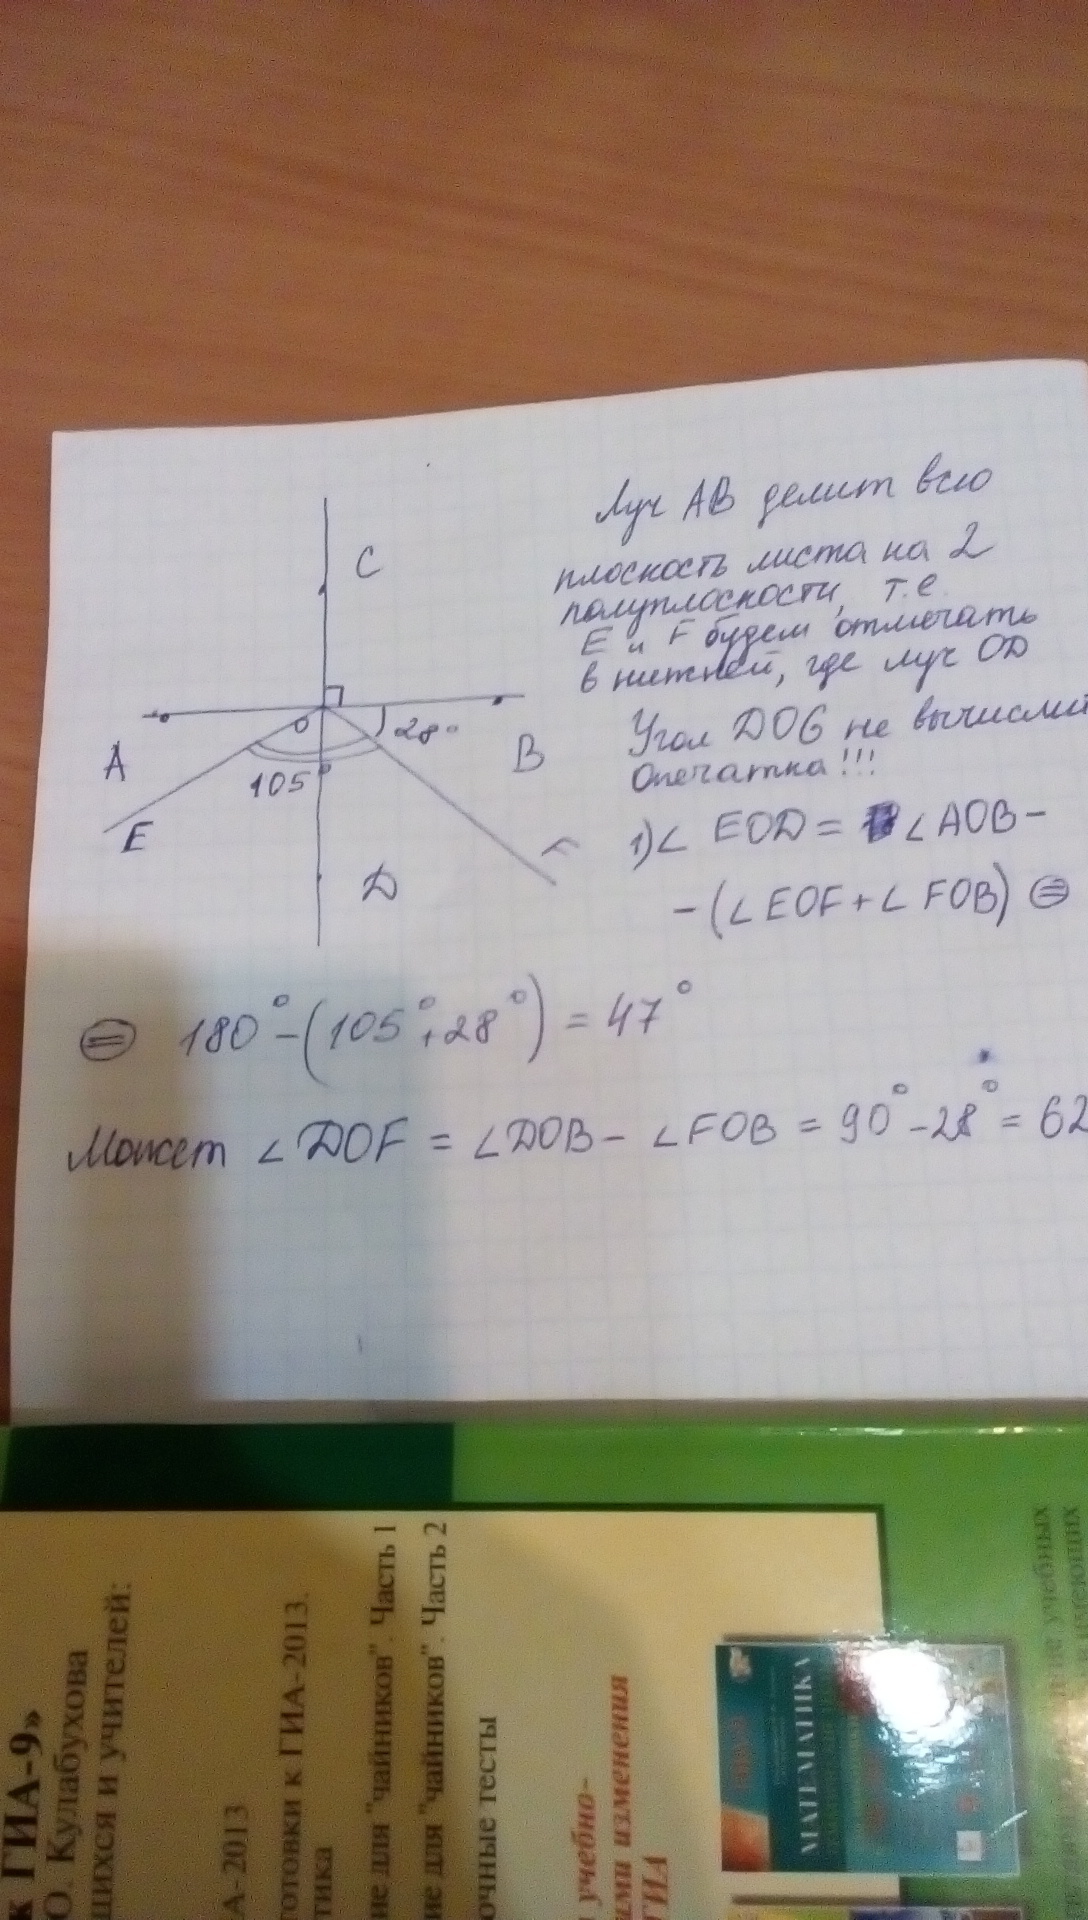 C
Луч AB делит всю
плоскость листа на 2
полуплоскости, т.е.
E и F будем отмечать
в нижней, где луч OD
O
28°
A
B
105°
E
D
Угол DOG не
Опечатка!!!
1) ∠ EOD = ∠ AOB -
- (∠ EOF + ∠ FOB) =
= 180° - (105° + 28°) = 47°
Может ∠ DOF = ∠ DOB - ∠ FOB = 90° - 28° = 62
к ГИА-9»
О. Кулабухова
щихся и учителей:
А-2013
готовки к ГИА-2013.
тика
ие для "чайников". Часть 1
ие для "чайников". Часть 2
очные тесты
учебно-
ми изменения
ГИА
МАТЕМАТИКА
учебных